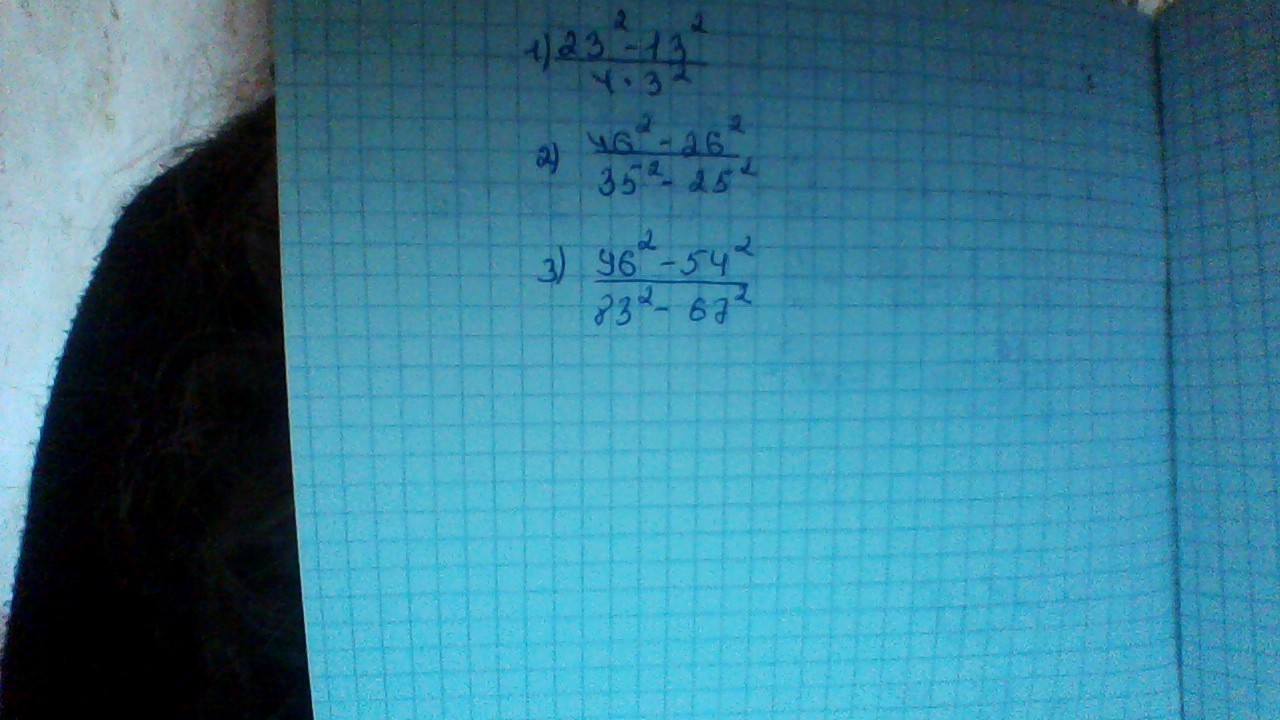 1) 23² - 13²
4 · 3²
2) 46² - 26²
35² - 25²
3) 96² - 54²
83² - 67²